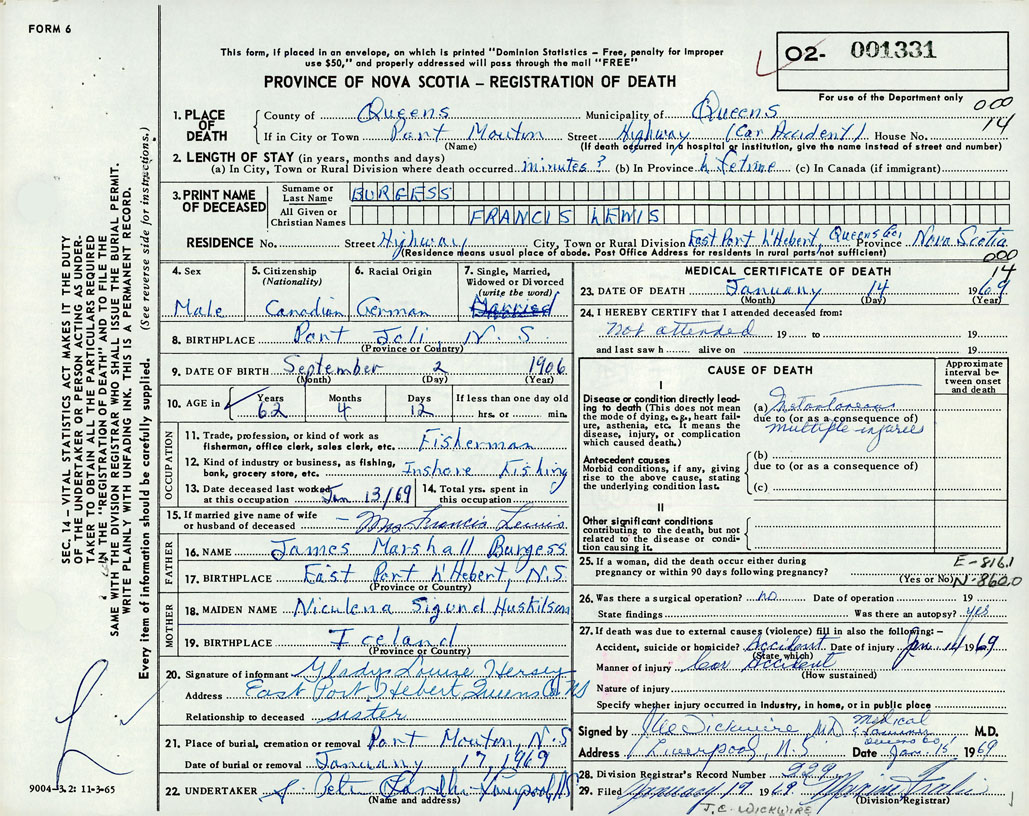 FORM 6
This form, if placed in an envelope, on which is printed "Dominion Statistics – Free, penalty for improper
use $50," and properly addressed will pass through the mail "FREE"
PROVINCE OF NOVA SCOTIA – REGISTRATION OF DEATH
02- 001331
For use of the Department only
000
14
1. PLACE OF DEATH
County of Queens Municipality of Queens
If in City or Town Port Mouton Street Highway (Car Accident) House No.
(Name) (If death occurred in a hospital or institution, give the name instead of street and number)
2. LENGTH OF STAY (in years, months and days)
(a) In City, Town or Rural Division where death occurred minutes? (b) In Province lifetime (c) In Canada (if immigrant)
3. PRINT NAME OF DECEASED
Surname or Last Name BURGESS
All Given or Christian Names FRANCIS LEWIS
RESIDENCE No. Street Highway City, Town or Rural Division East Port L'Hebert, Queens Co. Province Nova Scotia
(Residence means usual place of abode. Post Office Address for residents in rural parts not sufficient)
000
14
4. Sex
Male
5. Citizenship
(Nationality)
Canadian
6. Racial Origin
German
7. Single, Married,
Widowed or Divorced
(write the word)
Married
8. BIRTHPLACE Port Joli, N.S.
(Province or Country)
9. DATE OF BIRTH September 2 1906
(Month) (Day) (Year)
10. AGE in Years Months Days If less than one day old
62 4 12 hrs. or min.
OCCUPATION
11. Trade, profession, or kind of work as
fisherman, office clerk, sales clerk, etc. Fisherman
12. Kind of industry or business, as fishing,
bank, grocery store, etc. Inshore Fishing
13. Date deceased last worked
at this occupation Jan 13/69
14. Total yrs. spent in
this occupation
15. If married give name of wife
or husband of deceased – Mrs Francis Lewis
FATHER
16. NAME James Marshall Burgess
17. BIRTHPLACE East Port L'Hebert, N.S
(Province or Country)
MOTHER
18. MAIDEN NAME Niculena Sigund Huskilson
19. BIRTHPLACE Iceland
(Province or Country)
20. Signature of informant Gladys Louise Hersey
Address East Port Hebert Queens Co NS
Relationship to deceased sister
21. Place of burial, cremation or removal Port Mouton, N.S
Date of burial or removal January 17, 1969
22. UNDERTAKER
(Name and address)
MEDICAL CERTIFICATE OF DEATH
23. DATE OF DEATH January 14 1969
(Month) (Day) (Year)
24. I HEREBY CERTIFY that I attended deceased from:
Not attended 19 to 19
and last saw h alive on 19
CAUSE OF DEATH
Approximate interval between onset and death
I
Disease or condition directly leading to death (This does not mean the mode of dying, e.g., heart failure, asthenia, etc. It means the disease, injury, or complication which caused death.)
(a) Instantaneous
due to (or as a consequence of)
multiple injuries
Antecedent causes
Morbid conditions, if any, giving rise to the above cause, stating the underlying condition last.
(b)
due to (or as a consequence of)
(c)
II
Other significant conditions
contributing to the death, but not related to the disease or condition causing it.
25. If a woman, did the death occur either during
pregnancy or within 90 days following pregnancy?
(Yes or No)
E-816.1
N-860.0
26. Was there a surgical operation? no Date of operation 19
State findings Was there an autopsy? yes
27. If death was due to external causes (violence) fill in also the following: –
Accident, suicide or homicide? Accident Date of injury Jan 14 1969
(State which)
Manner of injury Car Accident
(How sustained)
Nature of injury
Specify whether injury occurred in Industry, in home, or in public place
Signed by Wickwire MD Medical Examiner Queens Co. M.D.
Address Liverpool, N.S. Date Jan. 15 1969
28. Division Registrar's Record Number 229
29. Filed January 19 1969
(Division Registrar)
J.C. WICKWIRE
SEC. 14 – VITAL STATISTICS ACT MAKES IT THE DUTY
OF THE UNDERTAKER OR PERSON ACTING AS UNDER-
TAKER TO OBTAIN ALL THE PARTICULARS REQUIRED
IN THE "REGISTRATION OF DEATH" AND TO FILE THE
SAME WITH THE DIVISION REGISTRAR WHO SHALL ISSUE THE BURIAL PERMIT.
WRITE PLAINLY WITH UNFADING INK. THIS IS A PERMANENT RECORD.
Every item of information should be carefully supplied. (See reverse side for instructions.)
9004-3.2: 11-3-65